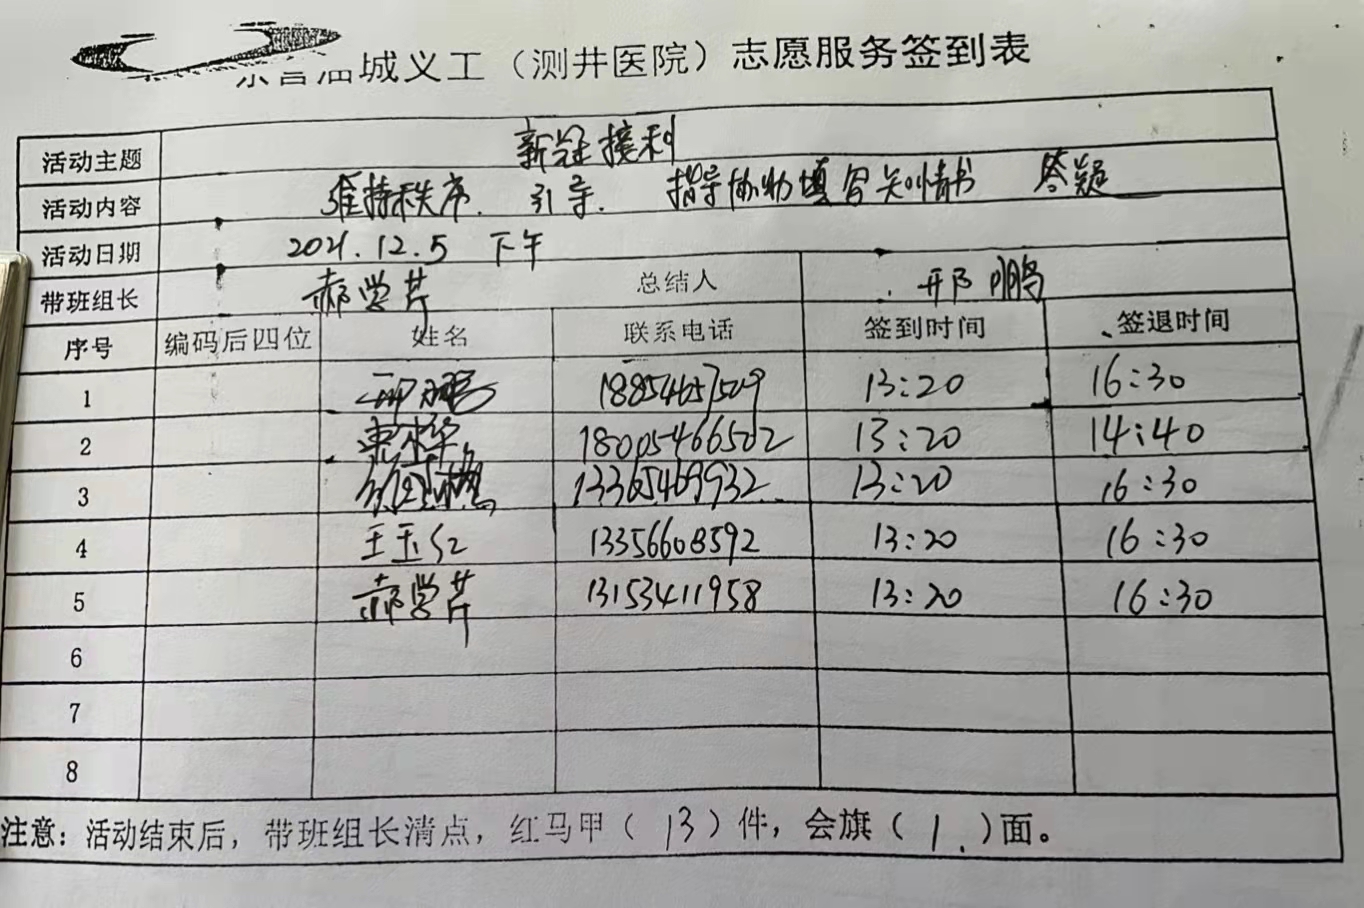 东营油城义工（测井医院）志愿服务签到表
活动主题 新冠接利
活动内容 维持秩序. 引导. 指导协助填写知情书 答疑
活动日期 2021.12.5 下午
带班组长 郝学芹 总结人 邢鹏
序号 编码后四位 姓名 联系电话 签到时间 签退时间
1 邢鹏 18854657509 13:20 16:30
2 18005466502 13:20 14:40
3 13365469932 13:20 16:30
4 王玉红 13356603592 13:20 16:30
5 郝学芹 13153411958 13:20 16:30
6
7
8
注意：活动结束后，带班组长清点，红马甲（13）件，会旗（1.）面。